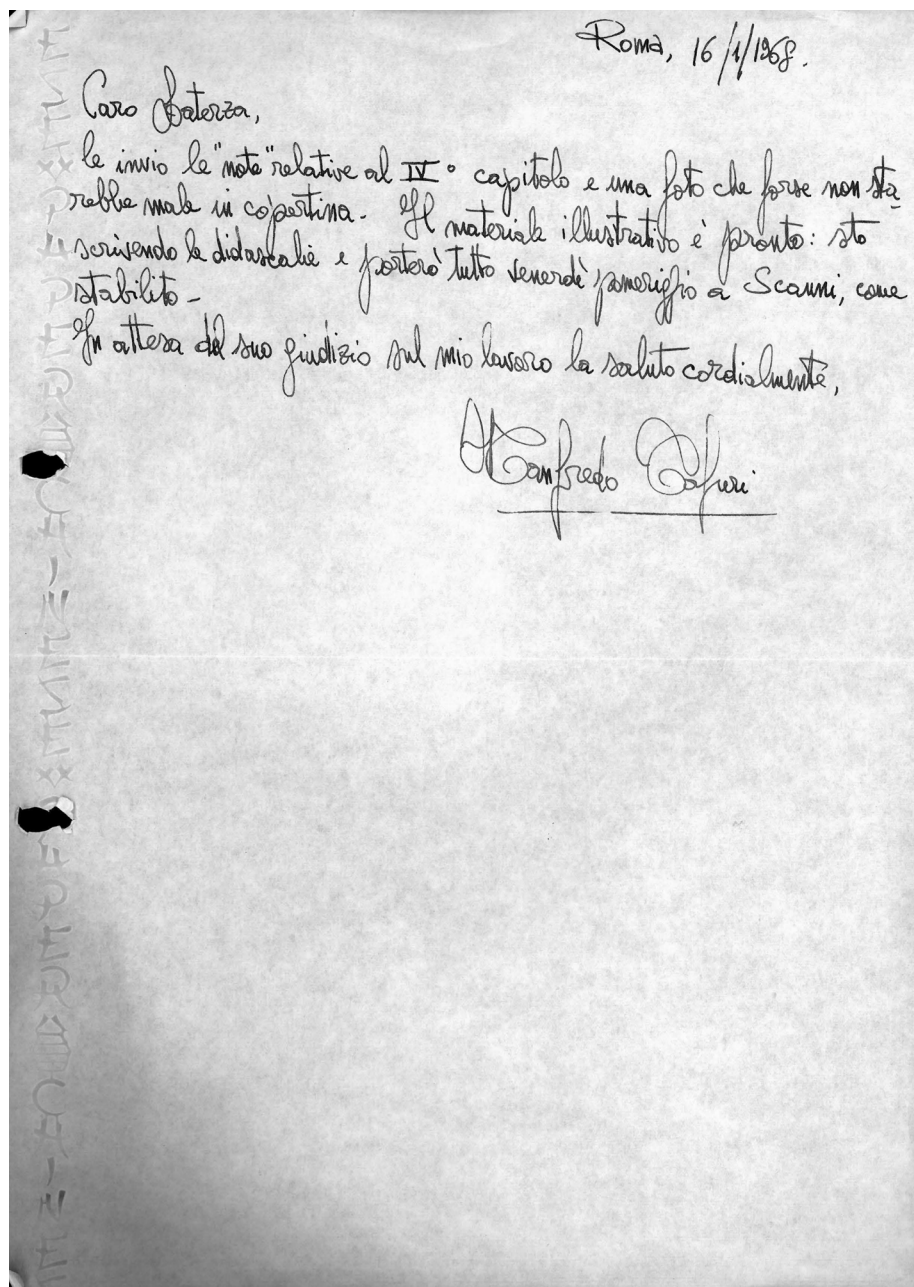 Roma, 16/1/1968.
Caro Laterza,
le invio le "note" relative al IV° capitolo e una foto che forse non sta-
rebbe male in copertina - Il materiale illustrativo è pronto: sto
scrivendo le didascalie e porterò tutto venerdì pomeriggio a Scanni, come
stabilito -
In attesa del suo giudizio sul mio lavoro la saluto cordialmente,
Manfredo Tafuri